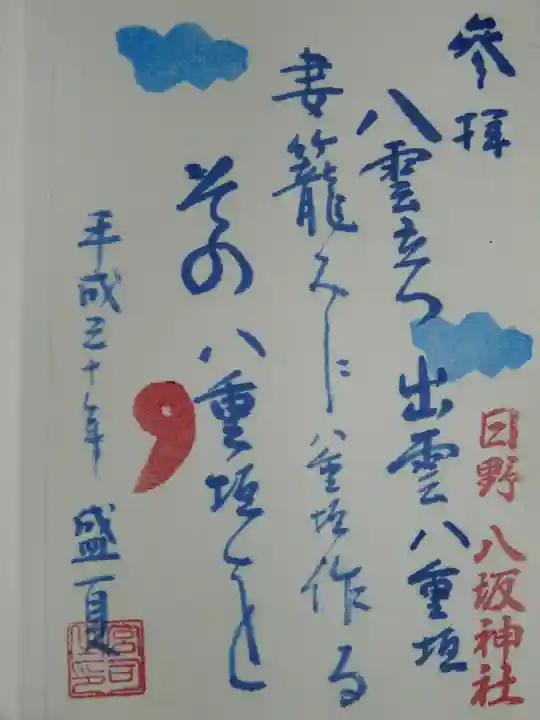 参拝
八雲立つ 出雲八重垣
日野 八坂神社
妻籠みに 八重垣作る
その 八重垣を
平成三十年 盛夏
宮司之印